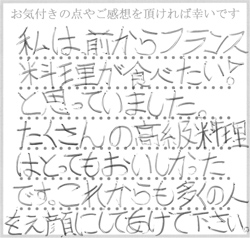 お気付きの点やご感想を頂ければ幸いです
私は前からフランス
料理が食べたい!
と思っていました。
たくさんの高級料理
はとってもおいしかった
です。これからも多くの人
をえ顔にしてあげて下さい